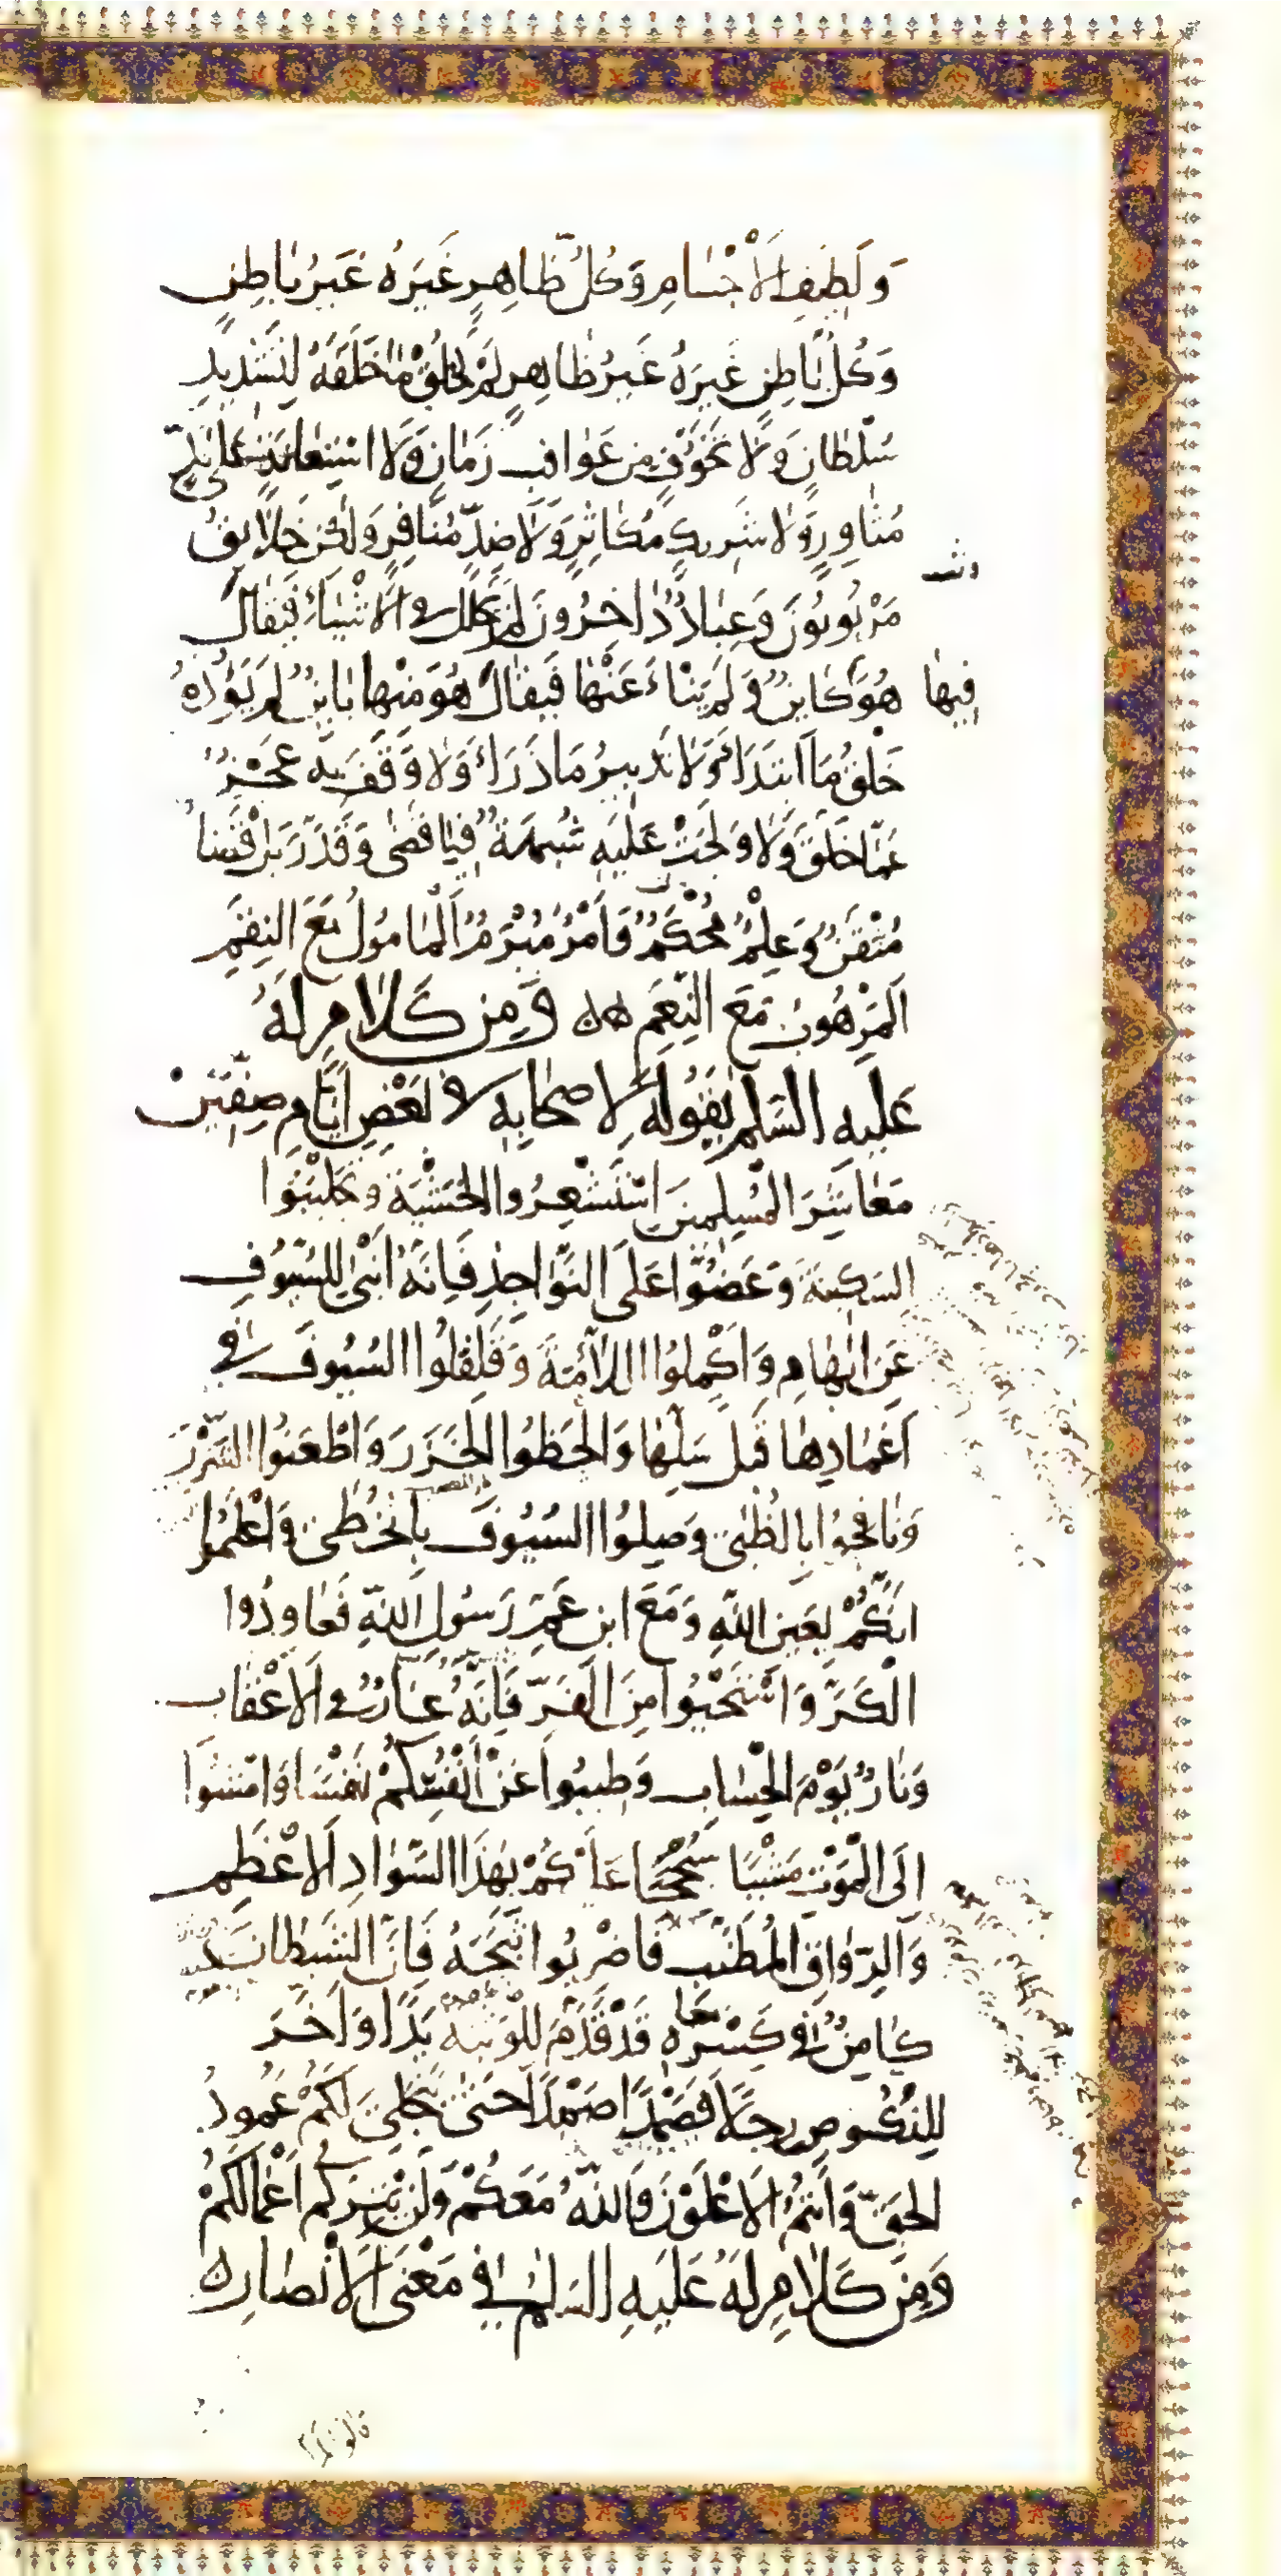 وَلَطِيفِ الْأَجْسَامِ وَكُلُّ ظَاهِرٍ غَيْرَهُ غَيْرُ بَاطِنٍ
وَكُلُّ بَاطِنٍ غَيْرَهُ غَيْرُ ظَاهِرٍ لَمْ يَخْلُقْ مَا خَلَقَهُ لِتَشْدِيدِ
سُلْطَانٍ وَلَا تَخَوُّفٍ مِنْ عَوَاقِبِ زَمَانٍ وَلَا اسْتِعَانَةٍ عَلَى نِدٍّ
مُثَاوِرٍ وَلَا شَرِيكٍ مُكَاثِرٍ وَلَا ضِدٍّ مُنَافِرٍ وَلَكِنْ خَلَائِقُ
مَرْبُوبُونَ وَعِبَادٌ دَاخِرُونَ لَمْ يَحْلُلْ فِي الْأَشْيَاءِ فَيُقَالَ
فِيهَا هُوَ كَائِنٌ وَلَمْ يَنْاءَ عَنْهَا فَيُقَالَ هُوَ مِنْهَا بَائِنٌ لَمْ يَؤُدْهُ
خَلْقُ مَا ابْتَدَأَ وَلَا تَدْبِيرُ مَا ذَرَاءَ وَلَا وَقَفَ بِهِ عَجْزٌ
عَمَّا خَلَقَ وَلَا وَلَجَتْ عَلَيْهِ شُبْهَةٌ فِيمَا قَضَى وَقَدَّرَ بَلْ قَضَاءٌ
مُتْقَنٌ وَعِلْمٌ مُحْكَمٌ وَأَمْرٌ مُبْرَمٌ الْمَأْمُولُ مَعَ النِّقَمِ
الْمَرْهُوبُ مَعَ النِّعَمِ وَمِنْ كَلَامٍ لَهُ
عَلَيْهِ السَّلَمُ يَقُولُهُ لِأَصْحَابِهِ فِي بَعْضِ أَيَّامِ صِفِّينَ
مَعَاشِرَ الْمُسْلِمِينَ اسْتَشْعِرُوا الْخَشْيَةَ وَتَجَلْبَبُوا
السَّكِينَةَ وَعَضُّوا عَلَى النَّوَاجِذِ فَإِنَّهُ أَنْبَى لِلسُّيُوفِ
عَنِ الْهَامِ وَأَكْمِلُوا اللَّأْمَةَ وَقَلْقِلُوا السُّيُوفَ فِي
أَغْمَادِهَا قَبْلَ سَلِّهَا وَالْحَظُوا الْخَزَرَ وَاطْعَنُوا الشَّزْرَ
وَنَافِحُوا بِالظُّبَى وَصِلُوا السُّيُوفَ بِالْخُطَى وَاعْلَمُوا
أَنَّكُمْ بِعَيْنِ اللَّهِ وَمَعَ ابْنِ عَمِّ رَسُولِ اللَّهِ فَعَاوِدُوا
الْكَرَّ وَاسْتَحْيُوا مِنَ الْفَرِّ فَإِنَّهُ عَارٌ فِي الْأَعْقَابِ
وَنَارٌ يَوْمَ الْحِسَابِ وَطِيبُوا عَنْ أَنْفُسِكُمْ نَفْسًا وَامْشُوا
إِلَى الْمَوْتِ مَشْيًا سُجُحًا عَلَيْكُمْ بِهَذَا السَّوَادِ الْأَعْظَمِ
وَالرِّوَاقِ الْمُطَنَّبِ فَاضْرِبُوا ثَبَجَهُ فَإِنَّ الشَّيْطَانَ
كَامِنٌ فِي كِسْرِهِ قَدْ قَدَّمَ لِلْوَثْبَةِ يَدًا وَأَخَّرَ
لِلنُّكُوصِ رِجْلًا فَصَمْدًا صَمْدًا حَتَّى يَنْجَلِيَ لَكُمْ عَمُودُ
الْحَقِّ وَأَنْتُمُ الْأَعْلَوْنَ وَاللَّهُ مَعَكُمْ وَلَنْ يَتِرَكُمْ أَعْمَالَكُمْ
وَمِنْ كَلَامٍ لَهُ عَلَيْهِ السَّلَمُ فِي مَعْنَى الْأَنْصَارِ
قالوا لما